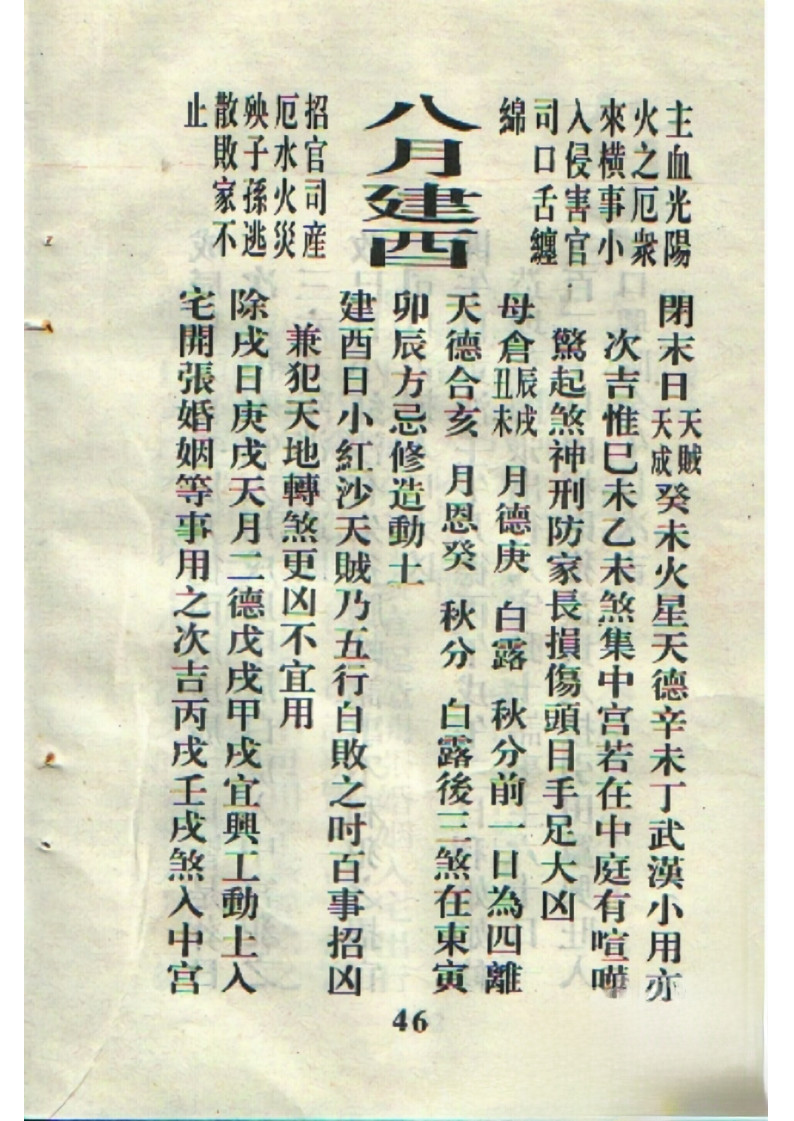 主血光陽
火之厄衆
來橫事小
入侵害官
司口舌纏
綿
八月建酉
招官司產
厄水火災
殃子孫逃
散敗家不
止
閉末日天賊天成癸未火星天德辛未丁武漢小用亦
次吉惟巳未乙未煞集中宮若在中庭有喧嘩
驚起煞神刑防家長損傷頭目手足大凶
母倉辰戌丑未 月德庚 白露 秋分前一日為四離
天德合亥 月恩癸 秋分 白露後三煞在東寅
卯辰方忌修造動土
建酉日小紅沙天賊乃五行自敗之吋百事招凶
兼犯天地轉煞更凶不宜用
除戌日庚戌天月二德戊戌甲戌宜興工動土入
宅開張婚姻等事用之次吉丙戌壬戌煞入中宮
46